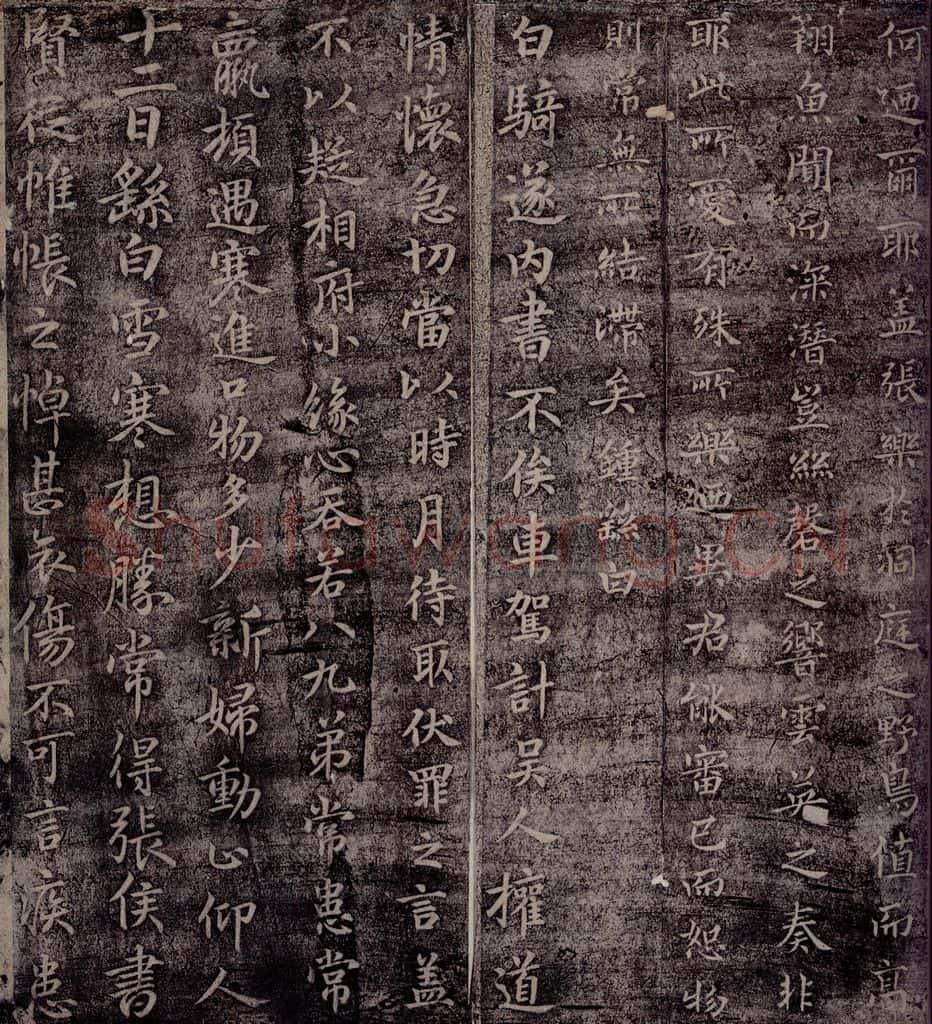 何迺爾耶蓋張樂於洞庭之野鳥值而高
翔魚聞而深潛豈絲磬之響雲英之奏非
耶此所愛有殊所樂迺異君能審己而恕物
則常無所結滯矣鍾繇白
白騎遂内書不俟車駕計吴人權道
情懷急切當以時月待取伏罪之言蓋
不以疑相府小緣心吞若八九弟常患常
羸頓遇寒進口物多少新婦動止仰人
十二日繇白雪寒想勝常得張侯書
賢從帷帳之悼甚哀傷不可言疾患
Shufawang.CN